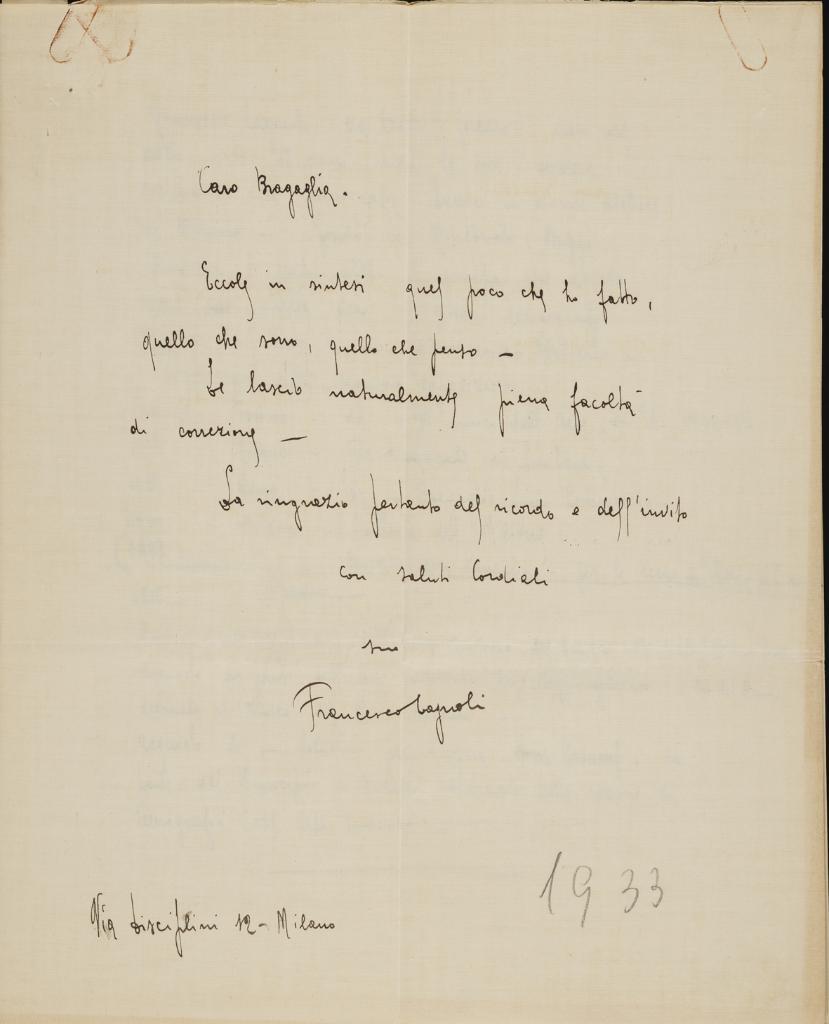 Caro Bragaglia.
Eccole in sintesi quel poco che ho fatto,
quello che sono, quello che penso –
Le lascio naturalmente piena facoltà
di correzione —
La ringrazio pertanto del ricordo e dell'invito
con saluti Cordiali
suo
Francesco
Via Disciplini 12 – Milano
1933